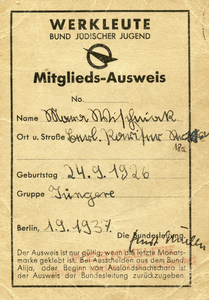 WERKLEUTE
BUND JÜDISCHER JUGEND
Mitglieds-Ausweis
No.
Name Mara Wischniak
Ort u. Straße Berl.
Geburtstag 24.9.1926
Gruppe Jüngere
Berlin, 1.9.1937. Die Bundesleitung:
Der Ausweis ist nur gültig, wenn die letzte Monats-
marke geklebt ist. Bei Ausscheiden aus dem Bund,
Alija, oder Beginn von Auslandhachschara ist
der Ausweis der Bundesleitung zurückzugeben.